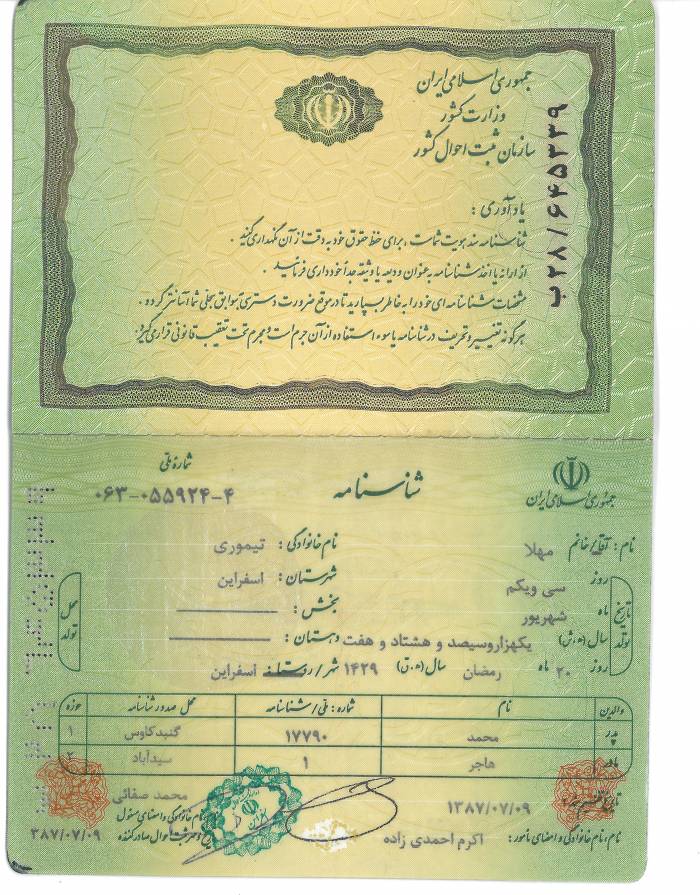 جمهوری اسلامی ایران
وزارت کشور
سازمان ثبت احوال کشور
ب ۲۸/۶۴۵۳۳۹
یادآوری :
شناسنامه سند هویت شماست ، برای حفظ حقوق خود به دقت از آن نگهداری کنید .
از ارائه یا اخذ شناسنامه به عنوان ودیعه یا وثیقه جداً خودداری فرمائید .
مشخصات شناسنامه ای خود را به خاطر بسپارید تا در موقع ضرورت دسترسی به سوابق سجلی شما آسانتر گردد .
هرگونه تغییر و تحریف در شناسنامه یا سوء استفاده از آن جرم است و مجرم تحت تعقیب قانونی قرار می گیرد .
جمهوری اسلامی ایران
شناسنامه
شماره ملی
۰۶۳-۰۵۵۹۲۴-۴
نام : آقا/خانم مهلا نام خانوادگی : تیموری
تاریخ تولد
روز سی ویکم شهرستان : اسفراین
ماه شهریور بخش :
سال (ه.ش) یکهزاروسیصد و هشتاد و هفت دهستان :
روز ۲۰ ماه رمضان سال (ه.ق) ۱۴۲۹ شهر/روستا : اسفراین
محل تولد
والدین نام شماره : ملی/شناسنامه محل صدور شناسنامه حوزه
پدر محمد ۱۷۷۹۰ گنبدکاوس ۱
مادر هاجر ۱ سیدآباد ۲
۱۳۸۷/۰۷/۰۹ محمد صفائی
نام،نام خانوادگی و امضای مامور : اکرم احمدی زاده
نام خانوادگی و امضای مسئول
۳۸۷/۰۷/۰۹